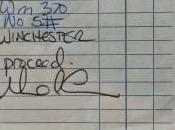 Wm 370
No 5#
WINCHESTER
proceed.